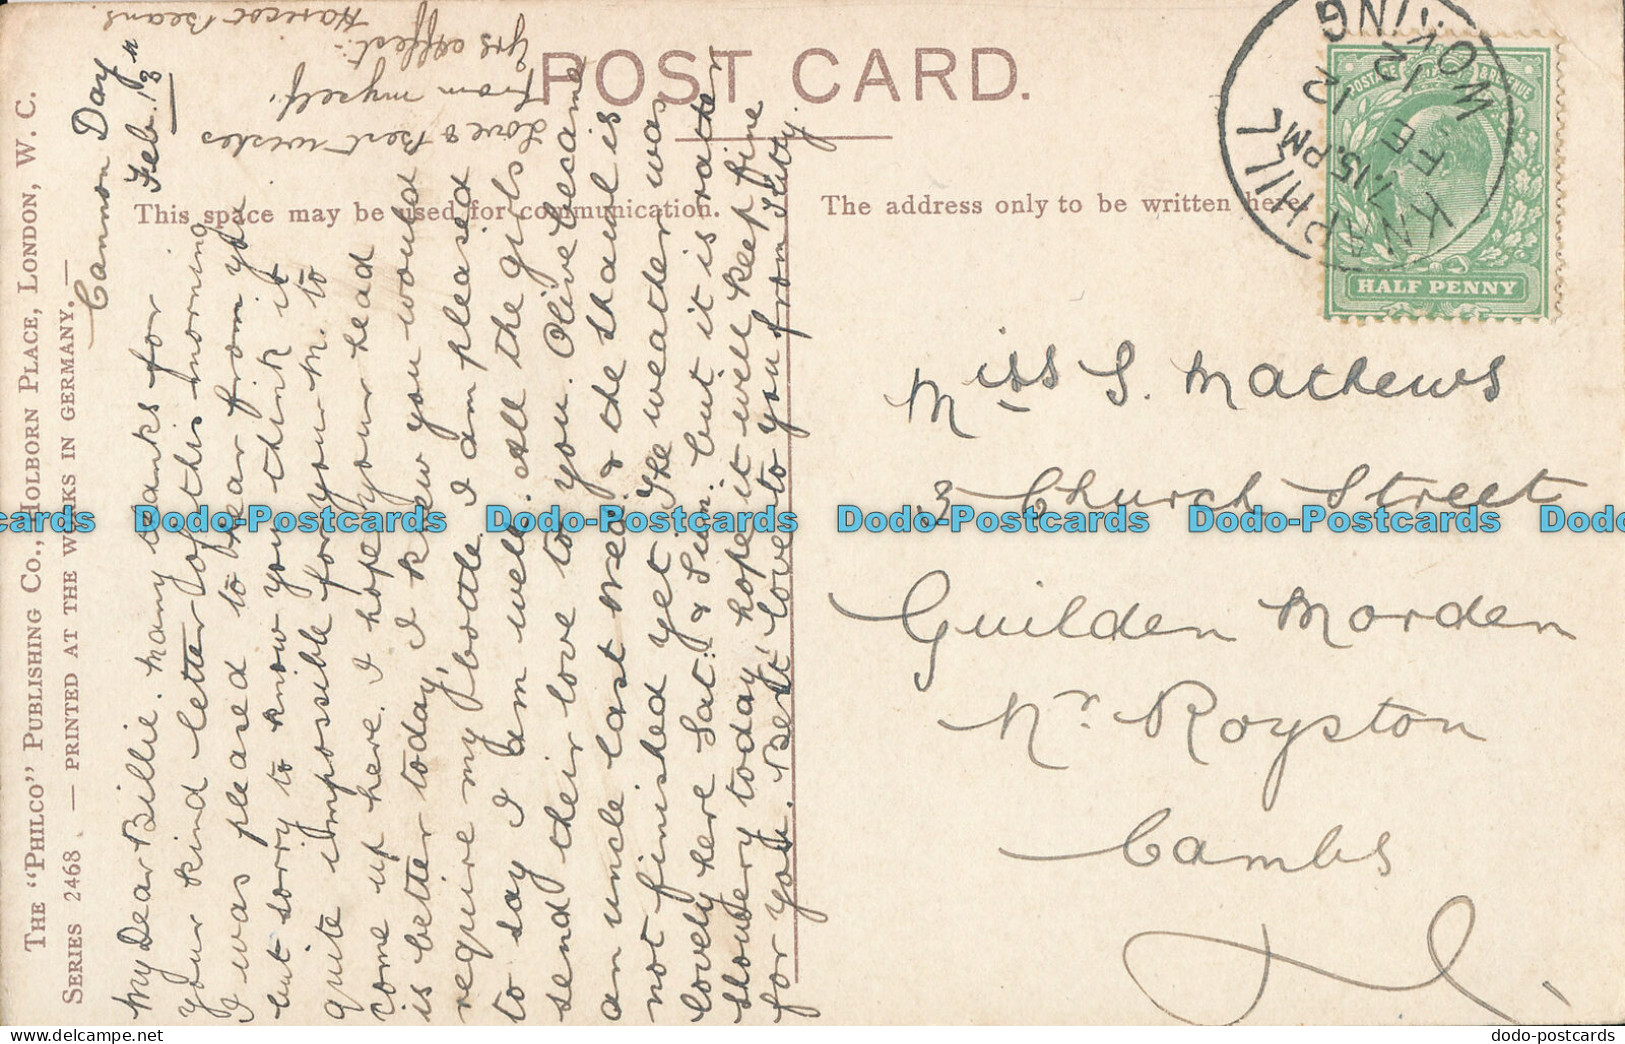 POST CARD.
This space may be used for communication.
The address only to be written here.
THE "PHILCO" PUBLISHING CO., HOLBORN PLACE, LONDON, W. C.
SERIES 2468 — PRINTED AT THE WORKS IN GERMANY. —
Cannon Day
Feb. 13th
My Dear Billie. Many thanks for
your kind letter of this morning
I was pleased to hear from you
but sorry to know you think it
quite impossible for you M. to
come up here. I hope your head
is better today, I knew you would
require my bottle. I am pleased
to say I am well. All the girls
send their love to you. Olive became
an uncle last Wed. & the shawl is
not finished yet. The weather was
lovely here Sat: & Sun: but it is rather
showery today, hope it will keep fine
for you. Best love to you from Kitty
Love & Best wishes
from myself.
Yrs affect:
Haricot Beans.
Miss S. Mathews
3 Church Street
Guilden Morden
Nr. Royston
Cambs
KNAPHILL
WOKING
7.15.PM
FE 12
12
POSTAGE & REVENUE
HALF PENNY
Dodo-Postcards Dodo-Postcards Dodo-Postcards Dodo-Postcards
dodo-postcards.com